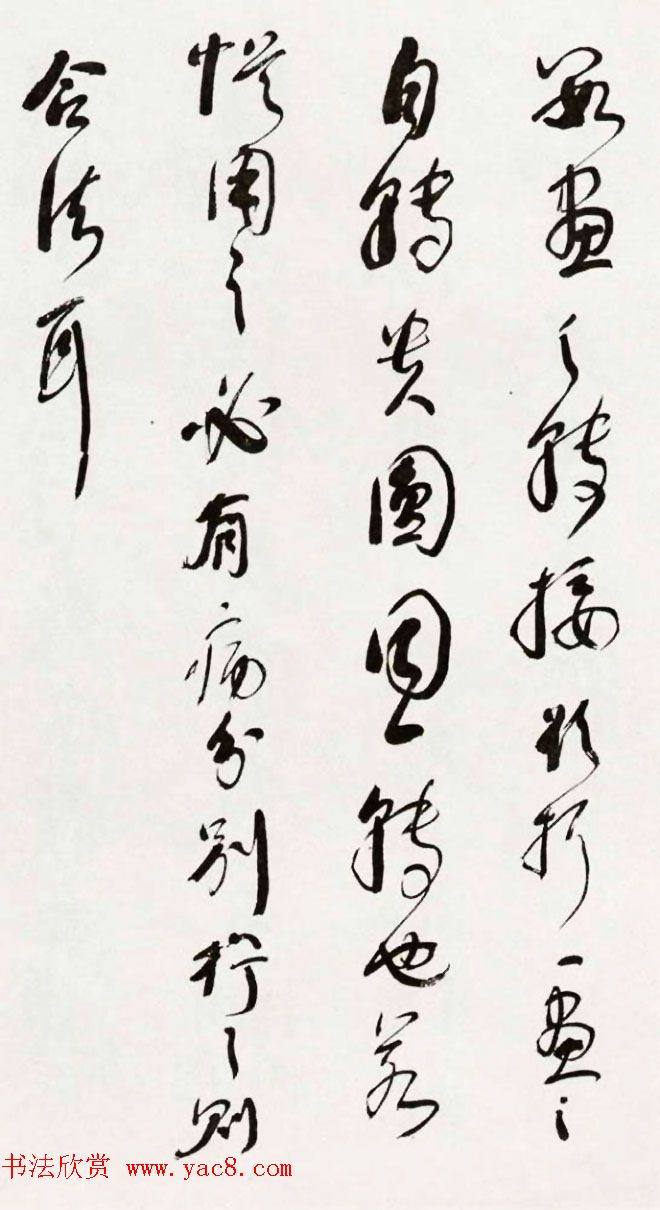 數畫之轉接欲折一畫之
自轉貴圓同一轉也若
悮用之必有病分別行之則
合法耳
书法欣赏 www.yac8.com